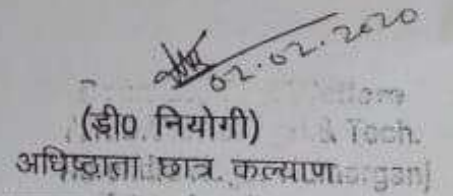 02.02.2020
(डी0 नियोगी)
& Tech.
अधिष्ठाता छात्र कल्याण